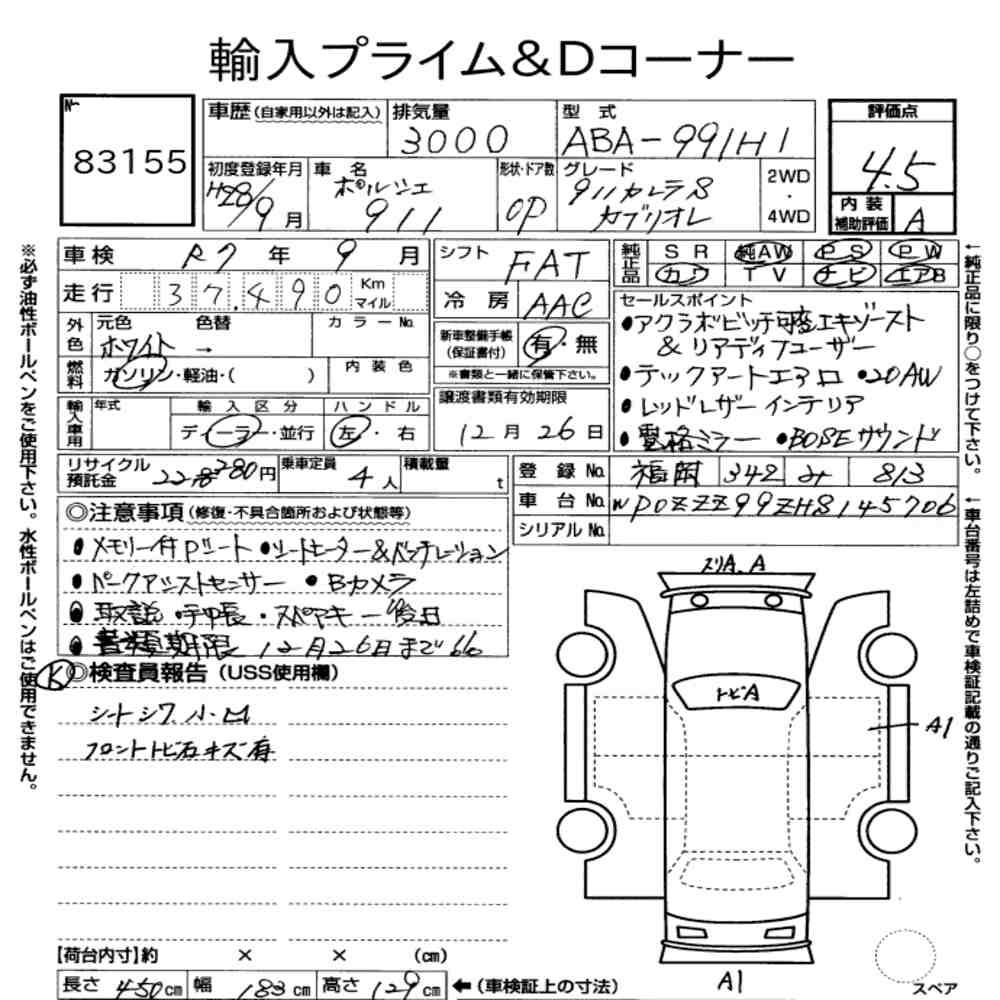 輸入プライム&Dコーナー
No
83155
車歴 (自家用以外は記入)
排気量
3000
型式
ABA-991H1
評価点
4.5
初度登録年月
H28/9月
車名
ポルシェ
911
形状・ドア数
OP
グレード
911カレラS
カブリオレ
2WD
・
4WD
内装
補助評価
A
車検 R7年 9月
走行 37.490 Km
マイル
外色
元色
色替
カラーNo.
ホワイト →
燃料
ガソリン・軽油・( )
内装色
輸入車用
年式
輸入区分
ハンドル
ディーラー・並行
左・右
シフト
FAT
冷房
AAC
新車整備手帳
(保証書付)
有・無
※書類と一緒に保管下さい。
譲渡書類有効期限
12月26日
純正品
SR 純AW PS PW
カワ TV ナビ エアB
セールスポイント
●アクラポビッチ可変エキゾースト
&リアディフューザー
●テックアートエアロ ●20AW
●レッドレザーインテリア
●電格ミラー ●BOSEサウンド
リサイクル
預託金
円
乗車定員
4人
積載量
t
登録No. 福岡 342 み 813
車台No. WP0ZZZ99ZHS145706
シリアルNo.
◎注意事項(修復・不具合箇所および状態等)
●メモリー付Pシート ●シートヒーター&ベンチレーション
●パークアシストセンサー ●Bカメラ
●取説・手帳・スペアキー後日
●書類期限12月26日まで
K
◎検査員報告(USS使用欄)
シートシワ 小凹
フロントトビ石キズ有
スリA、A
トビA
A1
A1
スペア
【荷台内寸】約 × × (cm)
長さ 450cm 幅 183cm 高さ 129cm ←(車検証上の寸法)
※必ず油性ボールペンをご使用下さい。水性ボールペンはご使用できません。
←純正品に限り○をつけて下さい。
←車台番号は左詰めで車検証記載の通りご記入下さい。